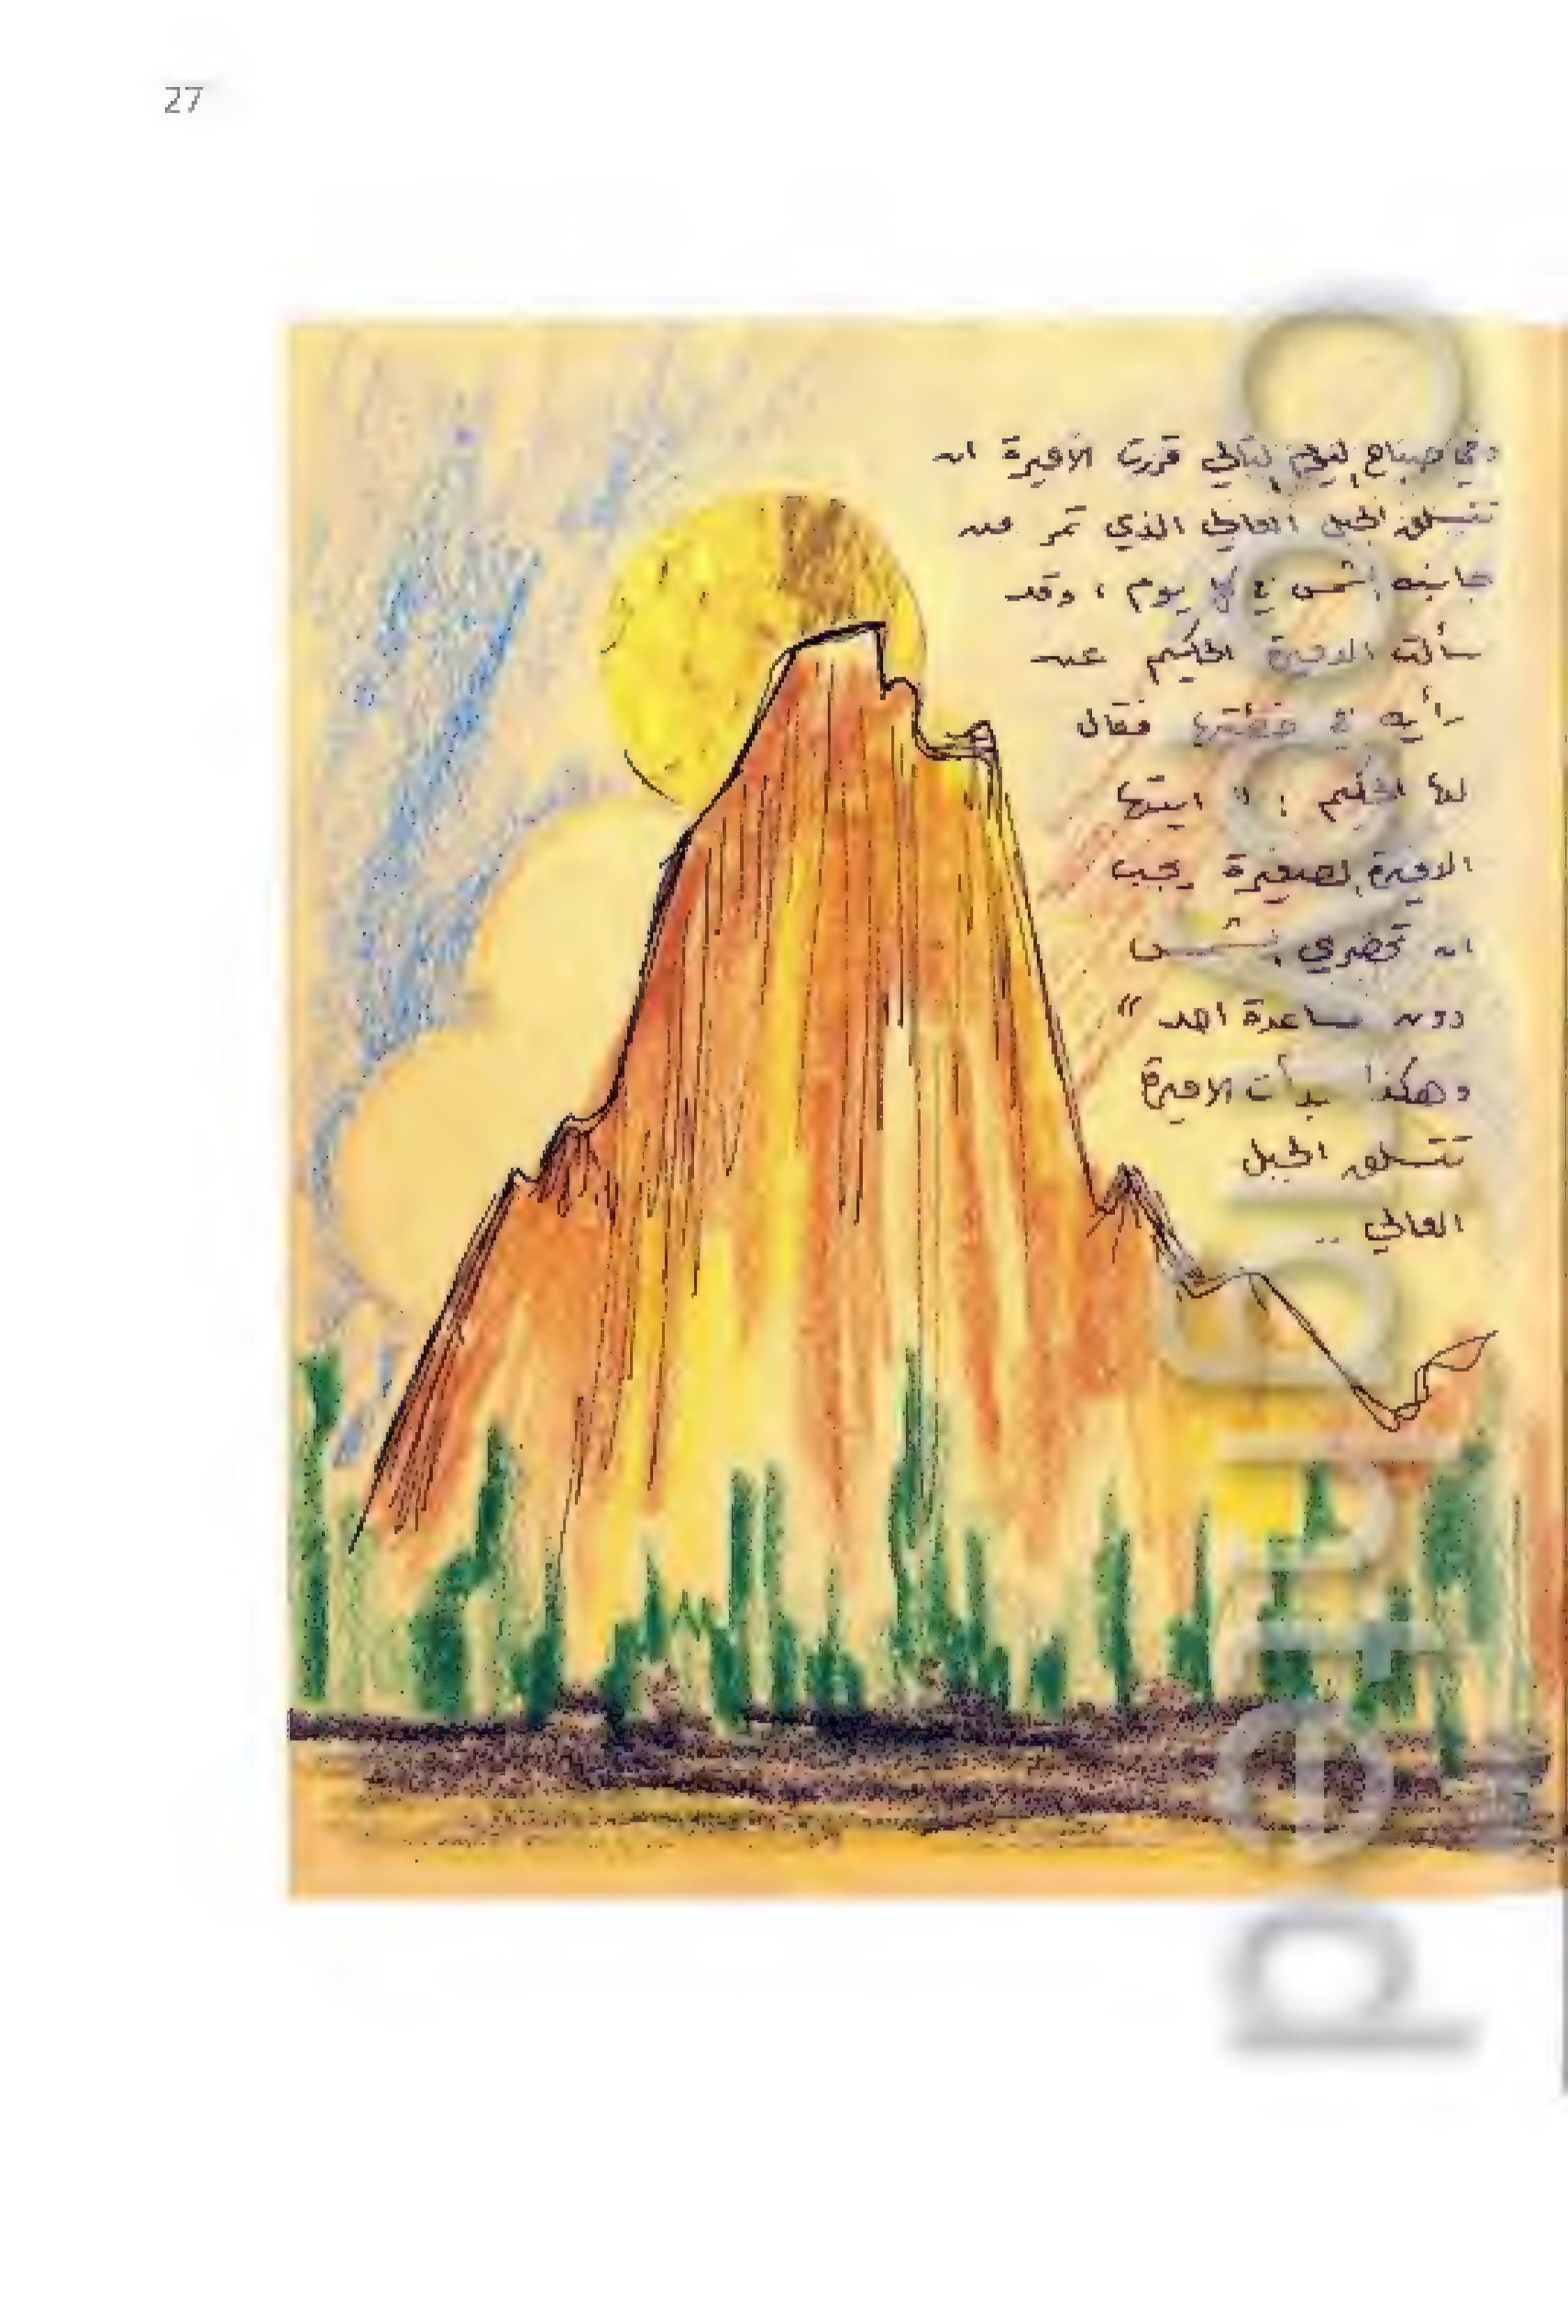 27
وفي صباح اليوم التالي قررت الأميرة ان
تتسلق الجبل العالي الذي تمر من
جانبه الشمس في كل يوم ، وقد
سألت الاميرة الحكيم عن
رأيه في خطتها فقال
لها الحكيم : " ايتها
الاميرة الصغيرة يجب
ان تحضري الشمس
دون مساعدة احد "
وهكذا بدأت الاميرة
تتسلق الجبل
العالي ..